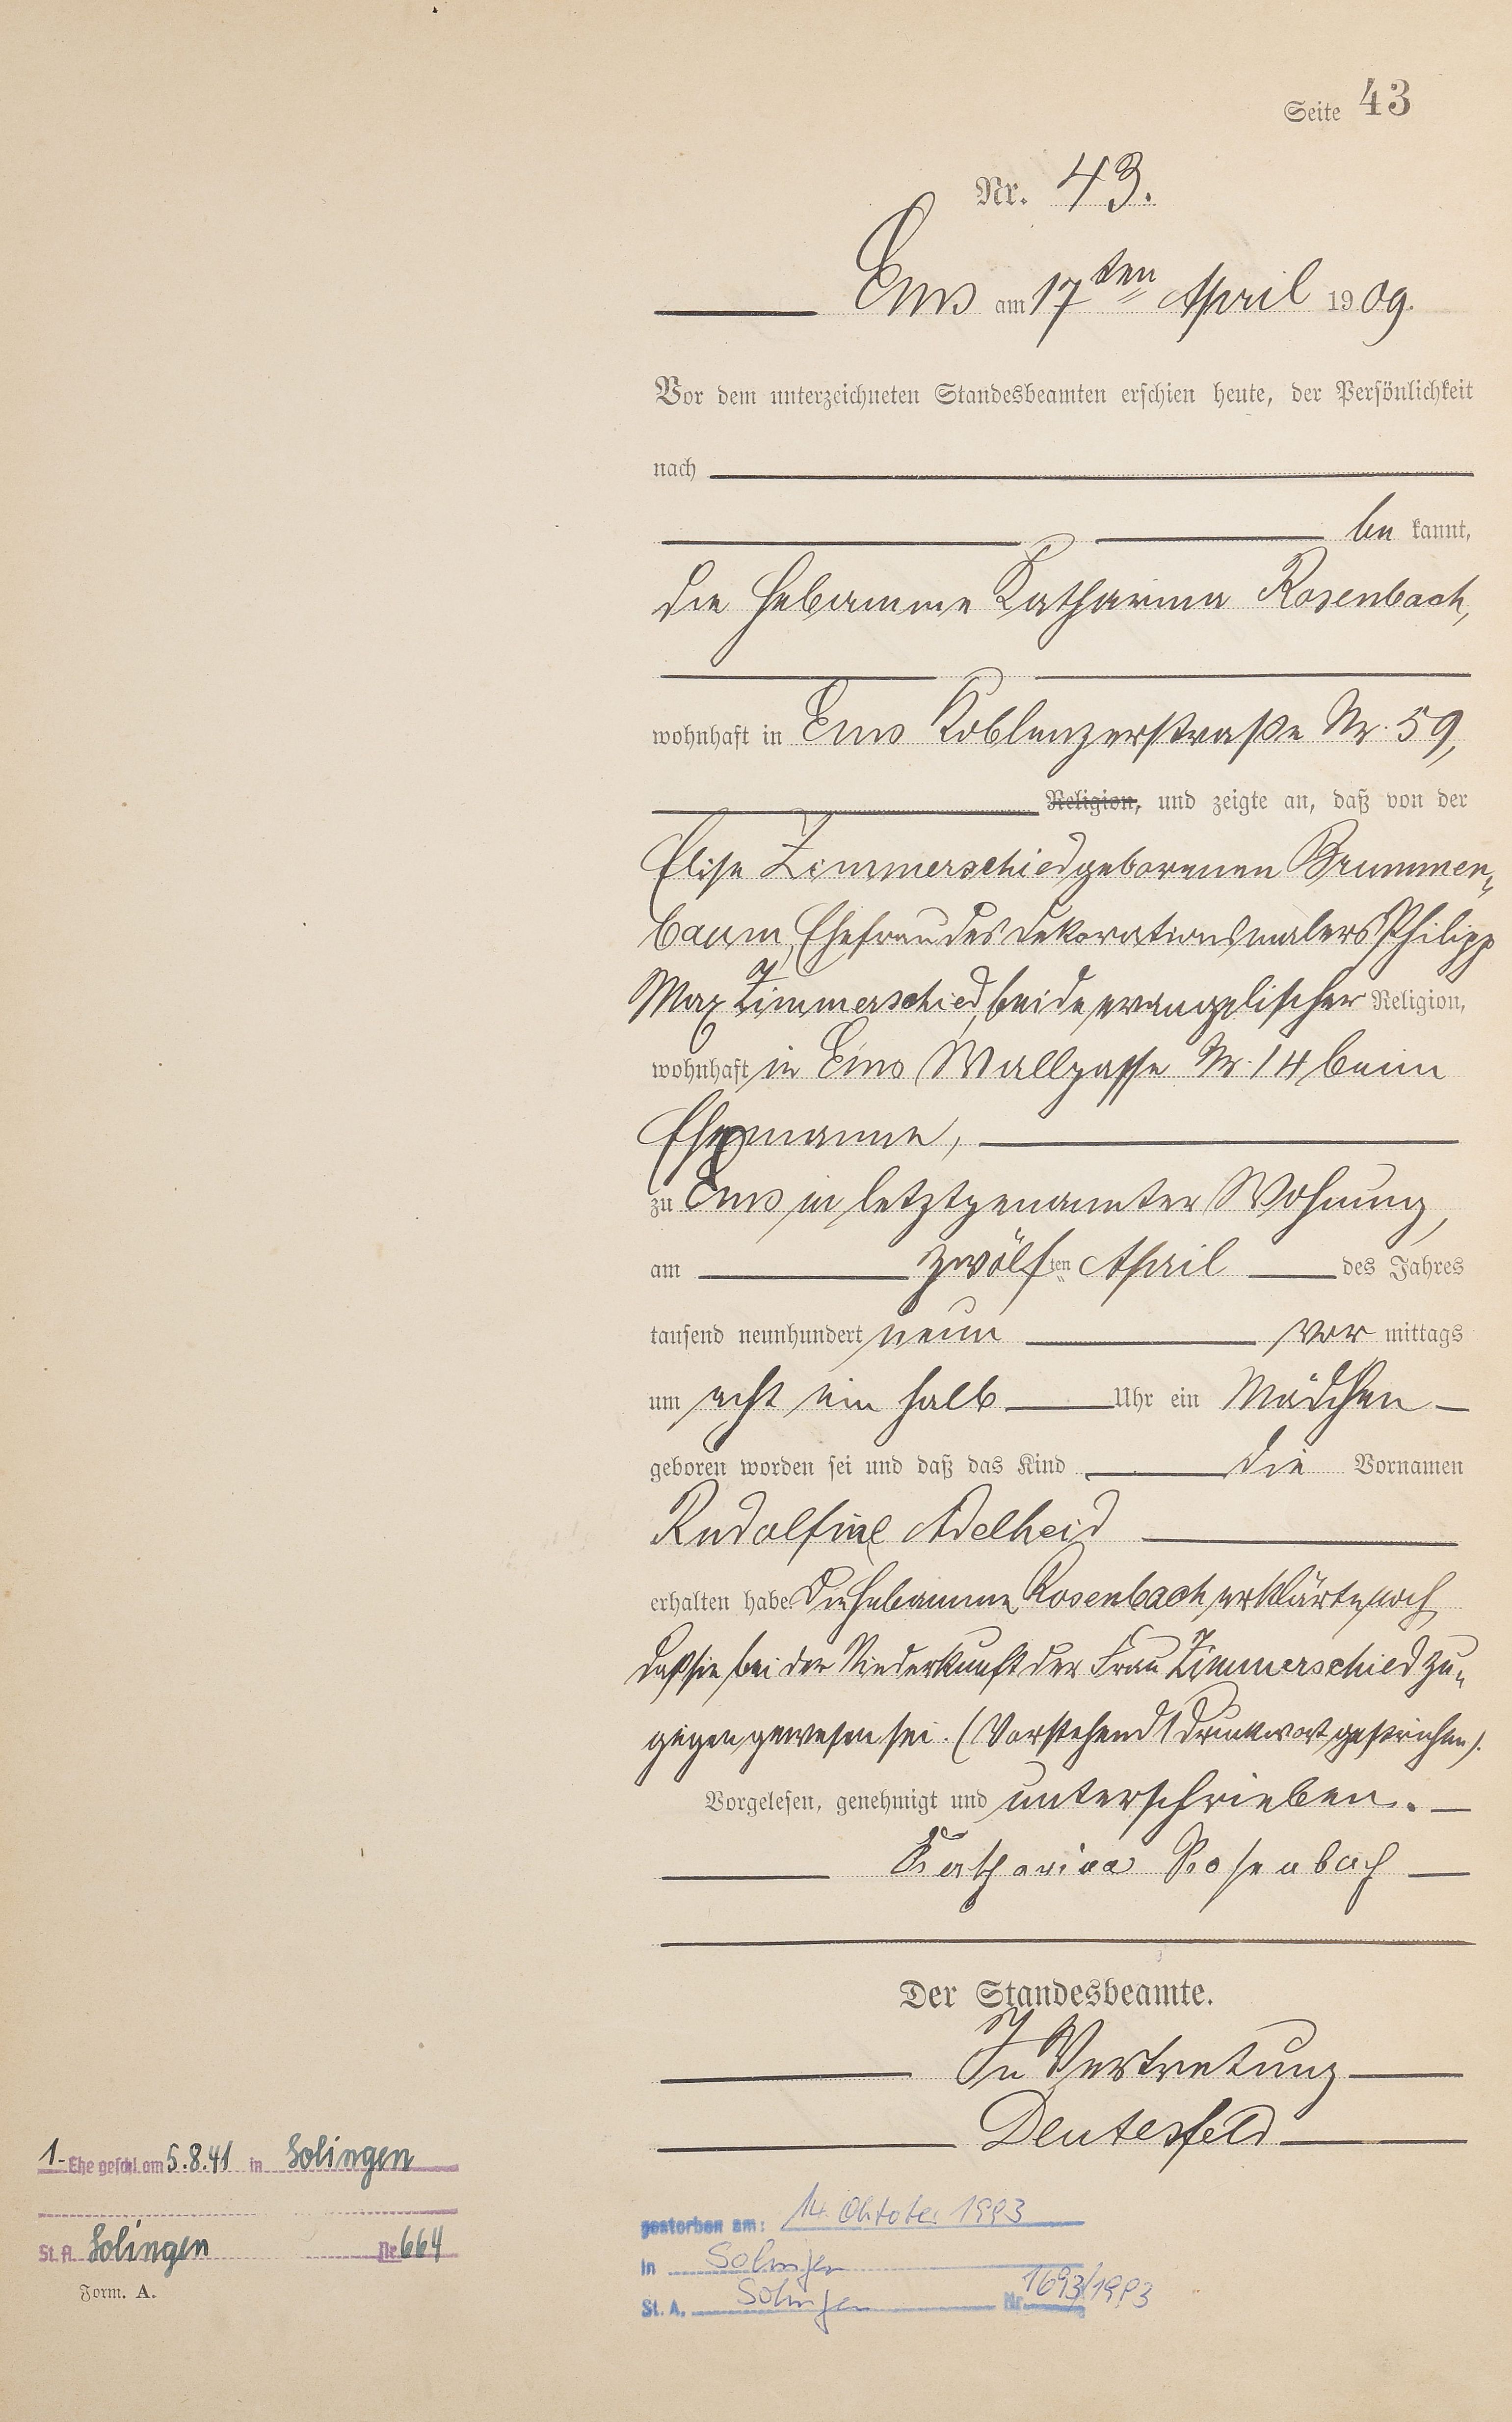 Seite 43
Nr. 43.
Ems am 17ten April 1909.
Vor dem unterzeichneten Standesbeamten erschien heute, der Persönlichkeit
nach
be kannt,
die Hebamme Katharina Rosenbach,
wohnhaft in Ems Koblenzerstraße Nr. 59,
Religion, und zeigte an, daß von der
Elise Zimmerschied geborenen Brummen„
baum, Ehefrau des Dekorationsmalers Philipp
Max Zimmerschied, beide evangelischer Religion,
wohnhaft in Ems Wallgasse Nr. 14 beim
Ehemanne,
zu Ems in letztgenannter Wohnung,
am zwölften April des Jahres
tausend neunhundert neun vor mittags
um acht ein halb Uhr ein Mädchen
geboren worden sei und daß das Kind die Vornamen
Rudolfine Adelheid
erhalten habe. Die Hebamme Rosenbach erklärte noch
daß sie bei der Niederkunft der Frau Zimmerschied zu„
gegen gewesen sei. (Vorstehend 1 Druckwort gestrichen).
Vorgelesen, genehmigt und unterschrieben.
Katharina Rosenbach
Der Standesbeamte.
In Vertretung
Deutesfeld
1. Ehe geschl. am 5.8.41 in Solingen
St. A. Solingen Nr. 664
Form. A.
gestorben am: 14. Oktober 1993
in Solingen
St. A. Solingen Nr. 1693/1993